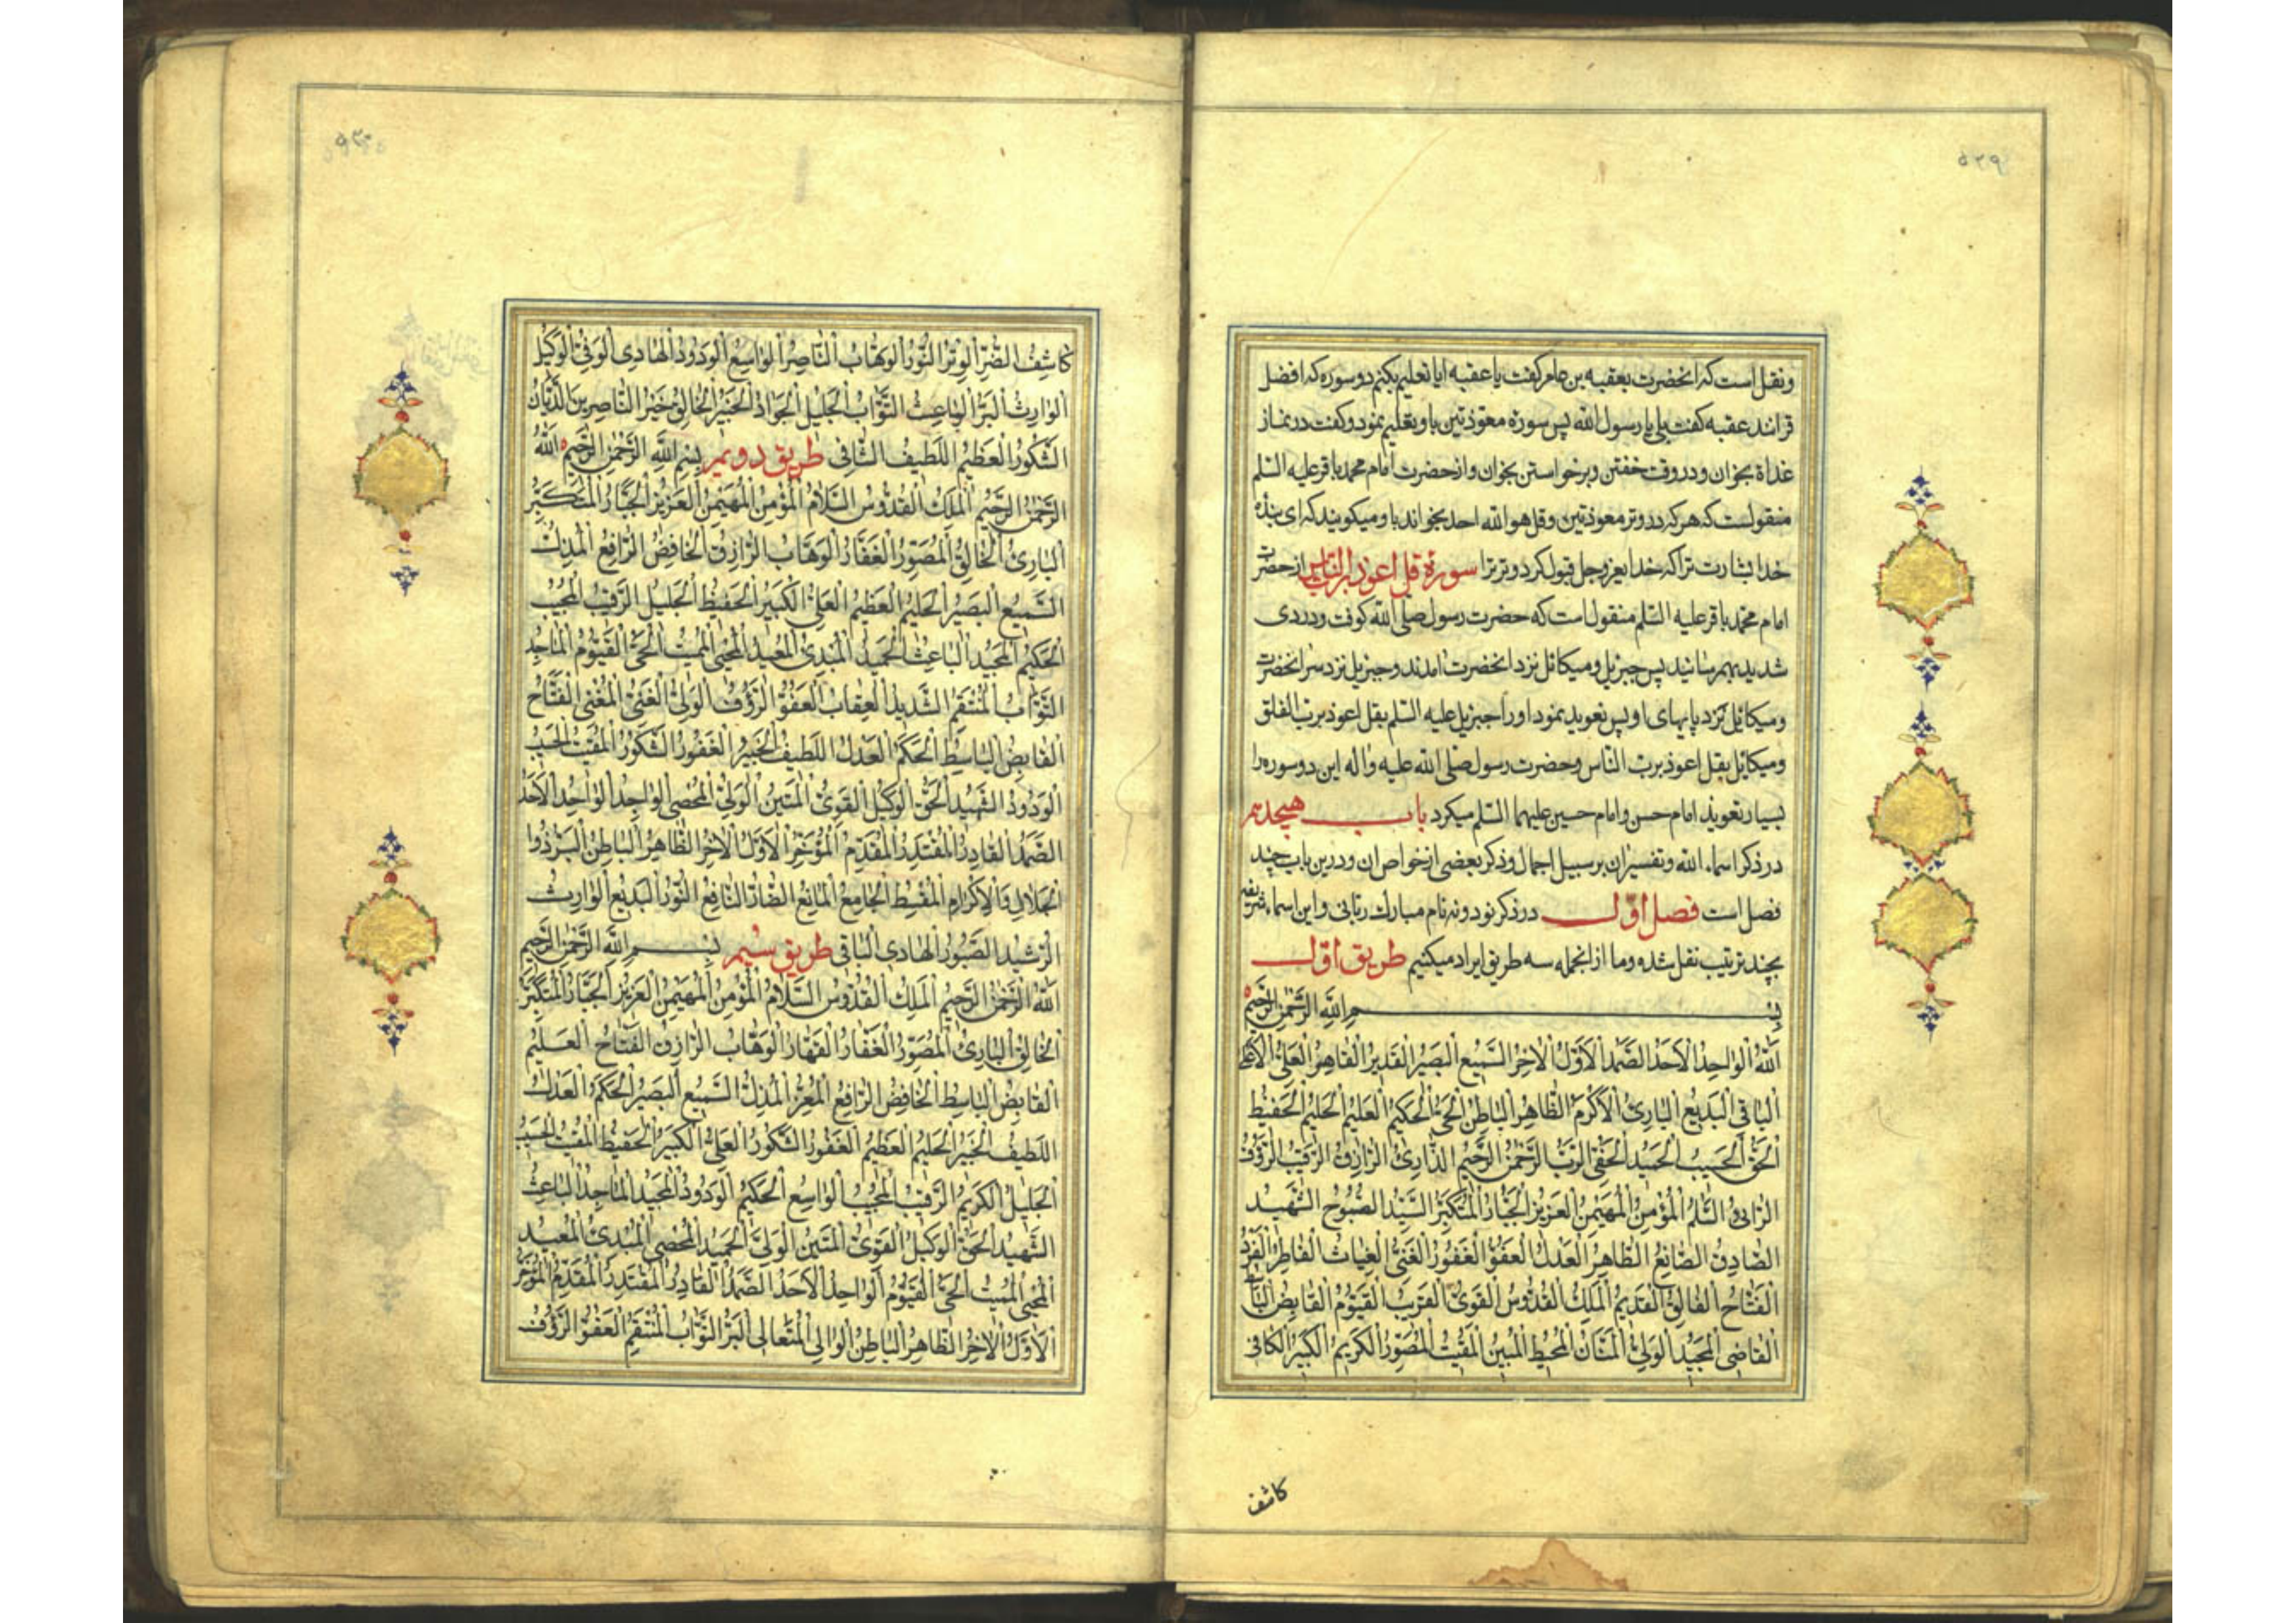 ۵۳۹
ونقل است که انحضرت بعقبه بن عامر کفت یا عقبه ایا تعلیم بکنم دو سوره که افضل
قرانند عقبه کفت بلی یا رسول الله پس سورۀ معوّذتین باو تعلیم نمود و کفت در نماز
غداة بخوان و در وقت خفتن و برخواستن بخوان و از حضرت امام محمد باقر علیه السّلم
منقولست که هر که در وتر معوذتین و قل هو الله احد بخواند باو میکویند که ای بندۀ
خدا بشارت ترا که خدا یعز وجل قبول کرد وتر ترا سورۀ قل اعوذ برب الناس از حضرت
امام محمّد باقر علیه السّلم منقول است که حضرت رسول صلی الله کوفت و دردی
شدید بهم رسانید پس جبرئیل و میکائل نزد انحضرت امدند و جبرئیل نزد سر انحضرت
و میکائیل نزد پایهای او پس تعویذ نمود او را جبرئیل علیه السّلم بقل اعوذ برب الفلق
و میکائیل بقل اعوذ برب الناس و حضرت رسول صلی الله علیه واله این دو سوره را
بسیار تعویذ امام حسن و امام حسین علیهما السّلم میکرد باب هیجدهم
در ذکر اسماء الله و تفسیر ان بر سبیل اجمال و ذکر بعضی از خواص ان و درین باب چند
فصل است فصل اوّل در ذکر نود و نه نام مبارک ربانی و این اسماء شریفه
بچند ترتیب نقل شده و ما از انجمله سه طریق ایراد میکنیم طریق اول
بِسْمِ اللَّهِ الرَّحْمٰنِ الرَّحِيمِ
اَللهُ الْوٰاحِدُ الْاَحَدُ الصَّمَدُ الْاَوَّلُ الْاٰخِرُ السَّمِيعُ الْبَصِيرُ الْقَدِيرُ الْقٰاهِرُ الْعَلِىُّ الْاَعْلىٰ
الْبٰاقِى الْبَدِيعُ الْبٰارِئُ الْاَكْرَمُ الظّٰاهِرُ الْبٰاطِنُ الْحَىُّ الْحَكِيمُ الْعَلِيمُ الْحَلِيمُ الْحَفِيظُ
الْحَقُّ الْحَسِيبُ الْحَمِيدُ الْحَفِىُّ الرَّبُّ الرَّحْمٰنُ الرَّحِيمُ الذّٰارِئُ الرّٰازِقُ الرَّقِيبُ الرَّؤُفُ
الرّٰائى السَّلٰمُ الْمُؤْمِنُ الْمُهَيْمِنُ الْعَزِيزُ الْجَبّٰارُ الْمُتَكَبِّرُ السَّيِّدُ الصُّبُوحُ الشَّهِيدُ
الصّٰادِقُ الصّٰانِعُ الطّٰاهِرُ الْعَدْلُ الْعَفُوُّ الْغَفُورُ الْغَنِىُّ الْغِيٰاثُ الْفٰاطِرُ الْفَرْدُ
الْفَتّٰاحُ الْفٰالِقُ الْقَدِيمُ الْمَلِكُ الْقُدُّوسُ الْقَوِىُّ الْقَرِيبُ الْقَيُّومُ الْقٰابِضُ الْبٰاسِطُ
الْقٰاضِى الْمَجِيدُ الْوَلِىُّ الْمَنّٰانُ الْمُحِيطُ الْمُبِينُ الْمُقِيتُ الْمُصَوِّرُ الْكَرِيمُ الْكَبِيرُ الْكٰافِى
کاشف
كٰاشِفُ الضُّرِّ الْوِتْرُ النُّورُ الْوَهّٰابُ النّٰاصِرُ الْوٰاسِعُ الْوَدُودُ الْهٰادِى الْوَفِىُّ الْوَكِيلُ
الْوٰارِثُ الْبَرُّ الْبٰاعِثُ التَّوّٰابُ الْجَلِيلُ الْجَوٰادُ الْخَبِيرُ الْخٰالِقُ خَيْرُ النّٰاصِرِينَ الدَّيّٰانُ
الشَّكُورُ الْعَظِيمُ اللَّطِيفُ الشّٰافِى طریق دویم بِسْمِ اللَّهِ الرَّحْمٰنِ الرَّحِيمِ اللهُ
الرَّحْمٰنُ الرَّحِيمُ الْمَلِكُ الْقُدُّوسُ السَّلٰامُ الْمُؤْمِنُ الْمُهَيْمِنُ الْعَزِيزُ الْجَبّٰارُ الْمُتَكَبِّرُ
الْبٰارِئُ الْخٰالِقُ الْمُصَوِّرُ الْغَفّٰارُ الْوَهّٰابُ الرّٰازِقُ الْخٰافِضُ الرّٰافِعُ الْمُذِلُّ
السَّمِيعُ الْبَصِيرُ الْحَلِيمُ الْعَظِيمُ الْعَلِىُّ الْكَبِيرُ الْحَفِيظُ الْجَلِيلُ الرَّقِيبُ الْمُجِيبُ
الْحَكِيمُ الْمَجِيدُ الْبٰاعِثُ الْحَمِيدُ الْمُبْدِئُ الْمُعِيدُ الْمُحْيِى الْمُمِيتُ الْحَىُّ الْقَيُّومُ الْمٰاجِدُ
التَّوّٰابُ الْمُنْتَقِمُ الشَّدِيدُ الْعِقٰابِ الْعَفُوُّ الرَّؤُفُ الْوَلِىُّ الْغَنِىُّ الْمُغْنِى الْفَتّٰاحُ
الْقٰابِضُ الْبٰاسِطُ الْحَكَمُ الْعَدْلُ اللَّطِيفُ الْخَبِيرُ الْغَفُورُ الشَّكُورُ الْمُقِيتُ الْحَسِيبُ
الْوَدُودُ الشَّهِيدُ الْحَقُّ الْوَكِيلُ الْقَوِىُّ الْمَتِينُ الْوَلِىُّ الْمُحْصِى الْوٰاجِدُ الْوٰاحِدُ الْاَحَدُ
الصَّمَدُ الْقٰادِرُ الْمُقْتَدِرُ الْمُقَدِّمُ الْمُؤَخِّرُ الْاَوَّلُ الْاٰخِرُ الظّٰاهِرُ الْبٰاطِنُ الْبَرُّ ذُوا
الْجَلٰالِ وَالْاِكْرٰامِ الْمُقْسِطُ الْجٰامِعُ الْمٰانِعُ الضّٰارُّ النّٰافِعُ النُّورُ الْبَدِيعُ الْوٰارِثُ
الرَّشِيدُ الصَّبُورُ الْهٰادِى الْبٰاقِى طریق سیم بِسْمِ اللَّهِ الرَّحْمٰنِ الرَّحِيمِ
اَللهُ الرَّحْمٰنُ الرَّحِيمُ الْمَلِكُ الْقُدُّوسُ السَّلٰامُ الْمُؤْمِنُ الْمُهَيْمِنُ الْعَزِيزُ الْجَبّٰارُ الْمُتَكَبِّرُ
الْخٰالِقُ الْبٰارِئُ الْمُصَوِّرُ الْغَفّٰارُ الْقَهّٰارُ الْوَهّٰابُ الرّٰازِقُ الْفَتّٰاحُ الْعَلِيمُ
الْقٰابِضُ الْبٰاسِطُ الْخٰافِضُ الرّٰافِعُ الْمُعِزُّ الْمُذِلُّ السَّمِيعُ الْبَصِيرُ الْحَكَمُ الْعَدْلُ
اللَّطِيفُ الْخَبِيرُ الْحَلِيمُ الْعَظِيمُ الْغَفُورُ الشَّكُورُ الْعَلِىُّ الْكَبِيرُ الْحَفِيظُ الْمُقِيتُ الْحَسِيبُ
الْجَلِيلُ الْكَرِيمُ الرَّقِيبُ الْمُجِيبُ الْوٰاسِعُ الْحَكِيمُ الْوَدُودُ الْمَجِيدُ الْمٰاجِدُ الْبٰاعِثُ
الشَّهِيدُ الْحَقُّ الْوَكِيلُ الْقَوِىُّ الْمَتِينُ الْوَلِىُّ الْحَمِيدُ الْمُحْصِى الْمُبْدِئُ الْمُعِيدُ
الْمُحْيِى الْمُمِيتُ الْحَىُّ الْقَيُّومُ الْوٰاحِدُ الْاَحَدُ الصَّمَدُ الْقٰادِرُ الْمُقْتَدِرُ الْمُقَدِّمُ الْمُؤَخِّرُ
الْاَوَّلُ الْاٰخِرُ الظّٰاهِرُ الْبٰاطِنُ الْوٰالِى الْمُتَعٰالِى الْبَرُّ التَّوّٰابُ الْمُنْتَقِمُ الْعَفُوُّ الرَّؤُفُ